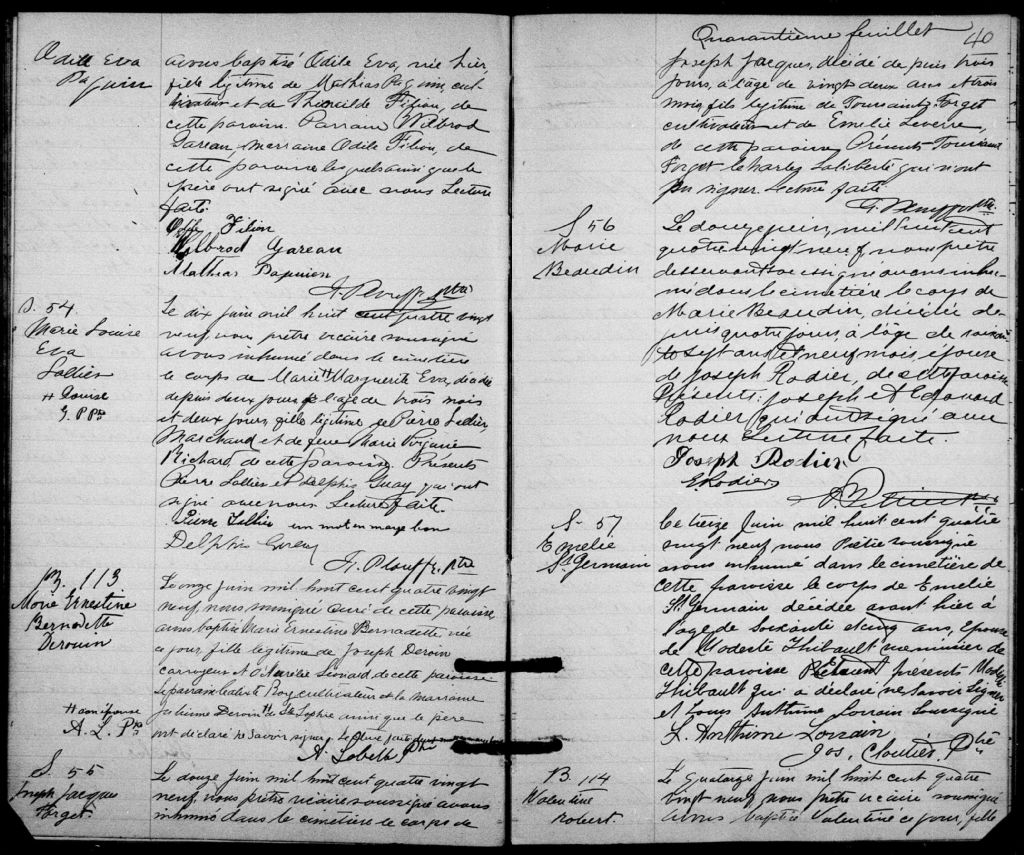 Odile Eva
Paquin
avons baptisé Odile Eva, née hier
fille légitime de Mathias Paquin, cul-
tivateur et de Themilde Filion, de
cette paroisse. Parrain Wilbrod
Gareau, marraine Odile Filion, de
cette paroisse lesquels ainsi que le
père ont signé avec nous Lecture
faite.
Filion
Wilbrod Gareau
Mathias Papuien
F. Plouffe ptre
S. 54
Marie Louise
Eva
Lollier
# Louise
Le dix juin mil huit cent quatre vingt
neuf, nous prêtre vicaire soussigné
avons inhumé dans le cimetière
le corps de Marie # Marguerite Eva, décédée
depuis deux jours à l'âge de trois mois
et deux jours, fille légitime de Pierre Lollier
Marchand et de feue Marie Virginie
Richard, de cette paroisse. Présents
Pierre Lollier et Delphis Guay qui ont
signé avec nous Lecture faite
un mot en marge bon
F. Plouffe, Ptre
B. 113
Marie Ernestine
Bernadette
Derouin
A. L. Ptre
Le onze juin mil huit cent quatre vingt
neuf, nous soussigné curé de cette paroisse
avons baptisé Marie Ernestine Bernadette née
ce jour, fille légitime de Joseph Deroin
carroyeur et d'Aurélie Léonard de cette paroisse
Le parrain Calixte Roy cultivateur et la marraine
Julienne Deroin # de Ste Sophie ainsi que le père
ont déclaré ne savoir signer. Lecture faite
A. Labelle Ptre
S. 55
Joseph Jacques
Forget.
Le douze juin mil huit cent quatre vingt
neuf, nous prêtre vicaire soussigné avons
inhumé dans le cimetière le corps de
Quarantième feuillet 40
Joseph Jacques, décédé depuis trois
jours, à l'âge de vingt deux ans et trois
mois, fils légitime de Toussaint Forget
cultivateur et de Emelie Leverre,
de cette paroisse, Présents Toussaint
Forget et Charles Laliberté qui n'ont
pu signer Lecture faite
F. Plouffe ptre
S. 56
Marie
Beaudin
Le douze juin, mil huit cent
quatre vingt neuf nous prêtre
desservant soussigné avons inhu-
mé dans le cimetière le corps de
Marie Beaudin, décédée de-
puis quatre jours, à l'âge de soixan-
te sept ans et neuf mois, épouse
de Joseph Rodier, de cette paroisse
Présents: Joseph et Edouard
Rodier qui ont signé avec
nous Lecture faite.
Joseph Rodier
E. Rodier
S. 57
Emelie
St Germain
Le treize Juin mil huit cent quatre
vingt neuf nous Prêtre soussigné
avons inhumé dans le cimetière de
cette paroisse le corps de Emelie
St Germain décédée avant hier à
l'age de soixante et cinq ans, épouse
de Modeste Thibault menuisier de
cette paroisse Etaient présents Modeste
Thibault qui a déclaré ne savoir signer
et Louis Anthime Lorrain soussigné
L. Anthime Lorrain
Jos. Cloutier, Ptre
B. 114
Valentine
Robert.
Le quatorze juin mil huit cent quatre
vingt neuf, nous prêtre vicaire soussigné
avons baptisé Valentine ce jour, fille